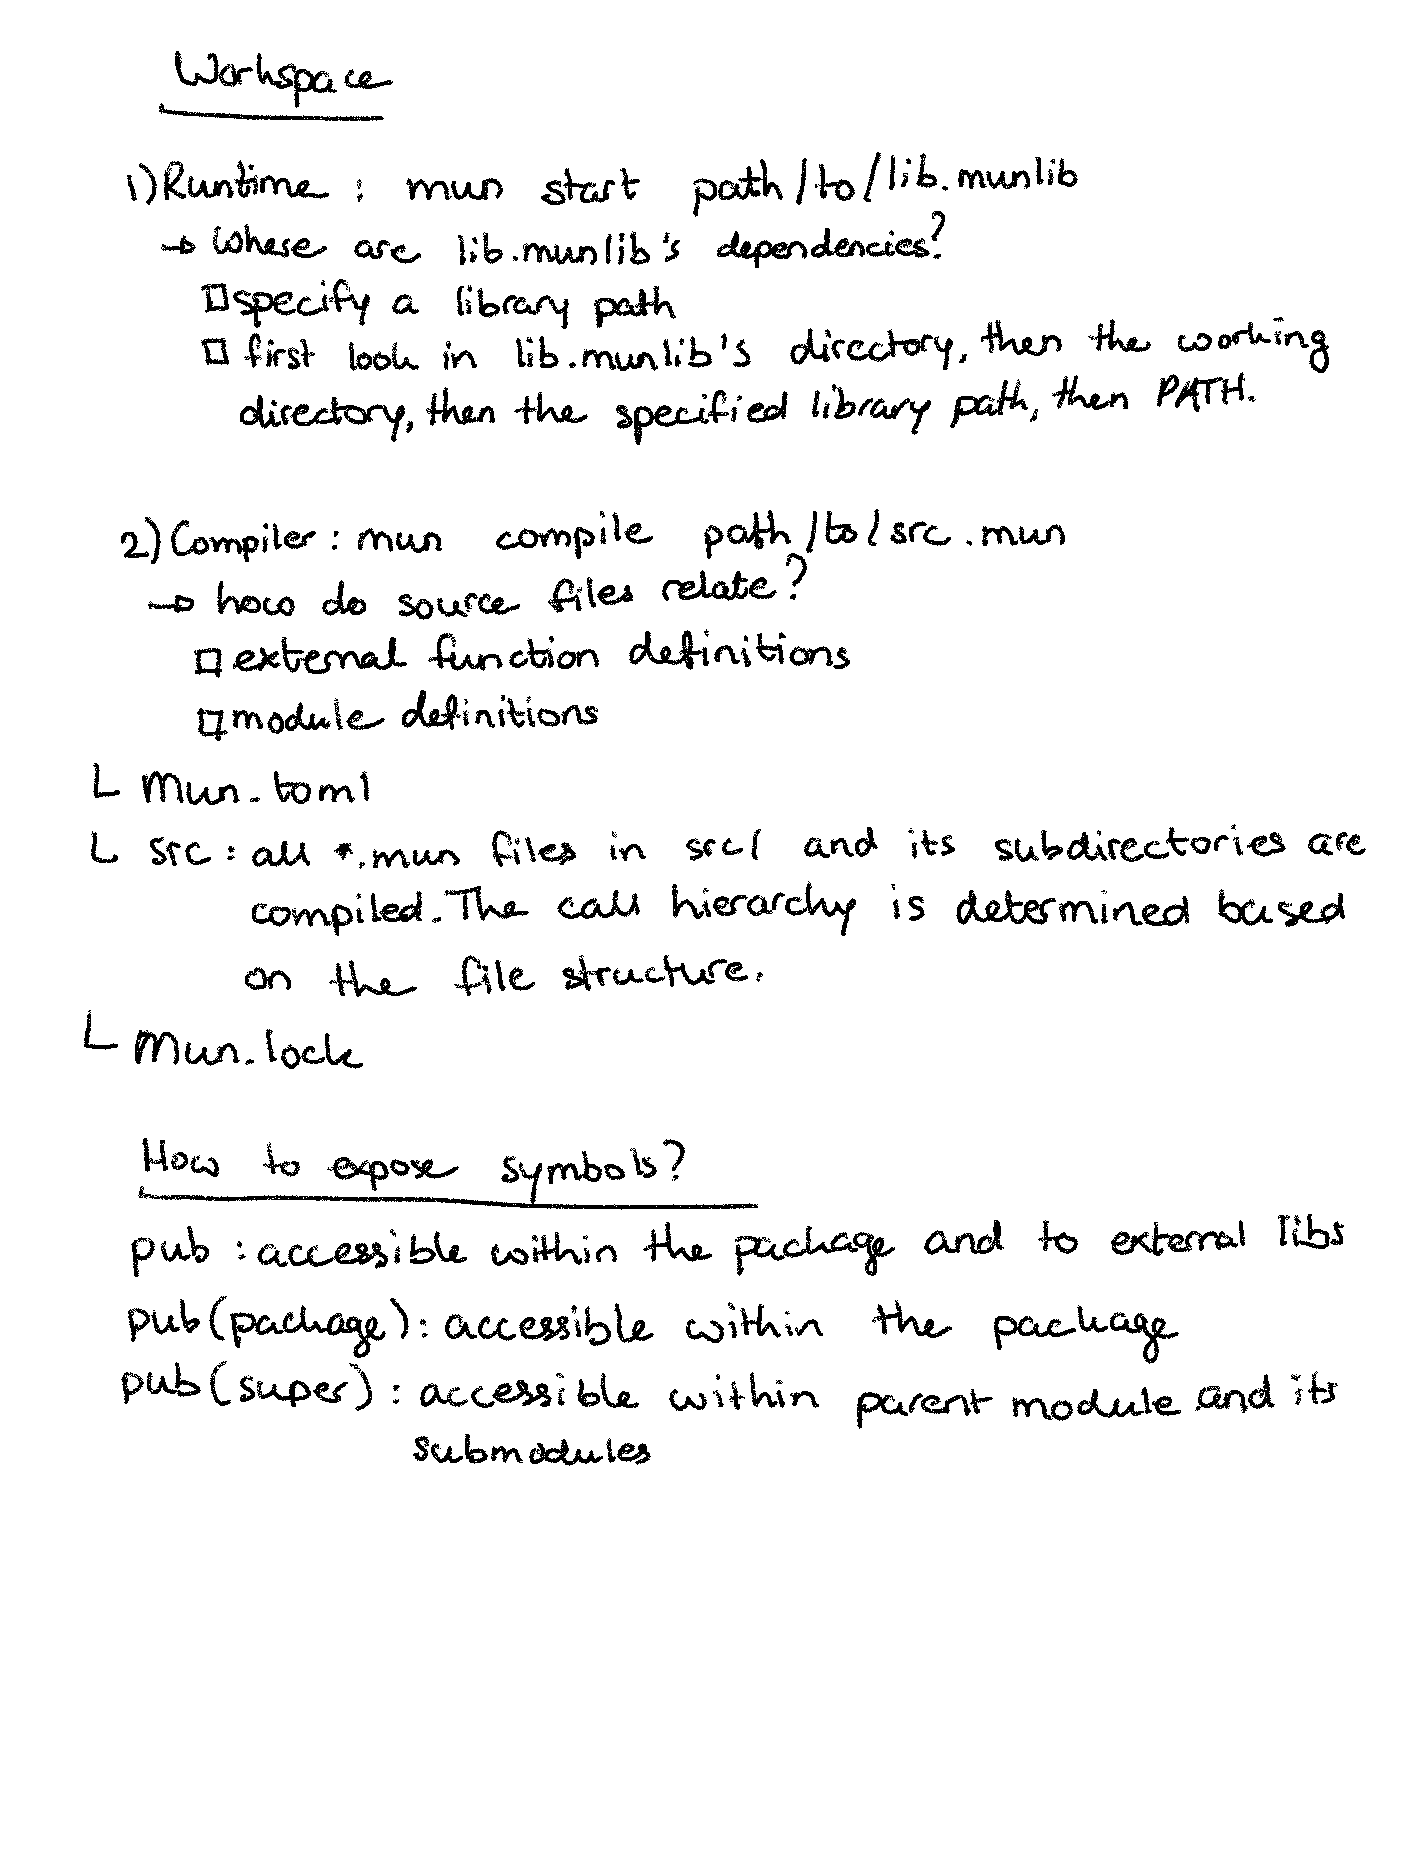 Workspace
1) Runtime : mun start path/to/lib.munlib
→ Where are lib.munlib's dependencies?
□ specify a library path
□ first look in lib.munlib's directory, then the working
directory, then the specified library path, then PATH.
2) Compiler : mun compile path/to/src.mun
→ how do source files relate?
□ external function definitions
□ module definitions
└ Mun.toml
└ src : all *.mun files in src/ and its subdirectories are
compiled. The call hierarchy is determined based
on the file structure.
└ Mun.lock
How to expose symbols?
pub : accessible within the package and to external libs
pub(package) : accessible within the package
pub(super) : accessible within parent module and its
submodules